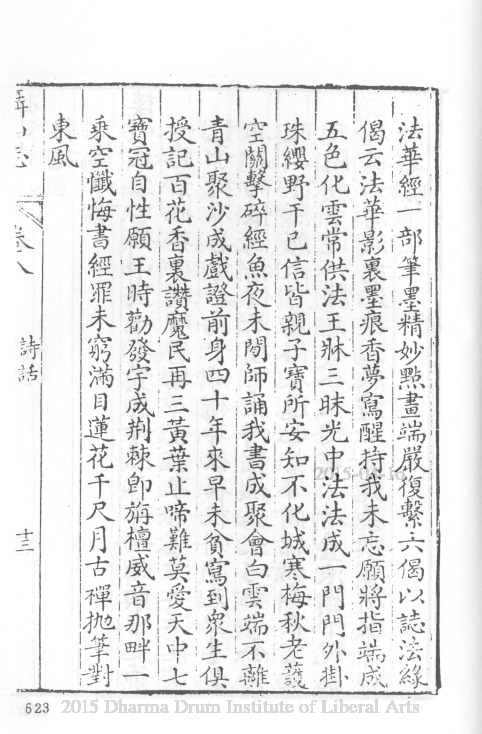 法華經一部筆墨精妙點畫端嚴復繫六偈以誌法緣
偈云法華影裏墨痕香夢寫醒持我未忘願將指端成
五色化雲常供法王牀三昧光中法法成一門門外掛
珠纓野干已信皆親子寶所安知不化城寒梅秋老護
空關擊碎經魚夜未閒師誦我書成聚會白雲端不離
青山聚沙成戲證前身四十年來早未貧寫到衆生俱
授記百花香裏讚魔民再三黃葉止啼難莫愛天中七
寶冠自性願王時勸發字成荆棘卽旃檀威音那畔一
乘空懺悔書經罪未窮滿目蓮花千尺月古禪拋筆對
東風
卷八
詩話
十三
2015-04-16
623
2015 Dharma Drum Institute of Liberal Arts